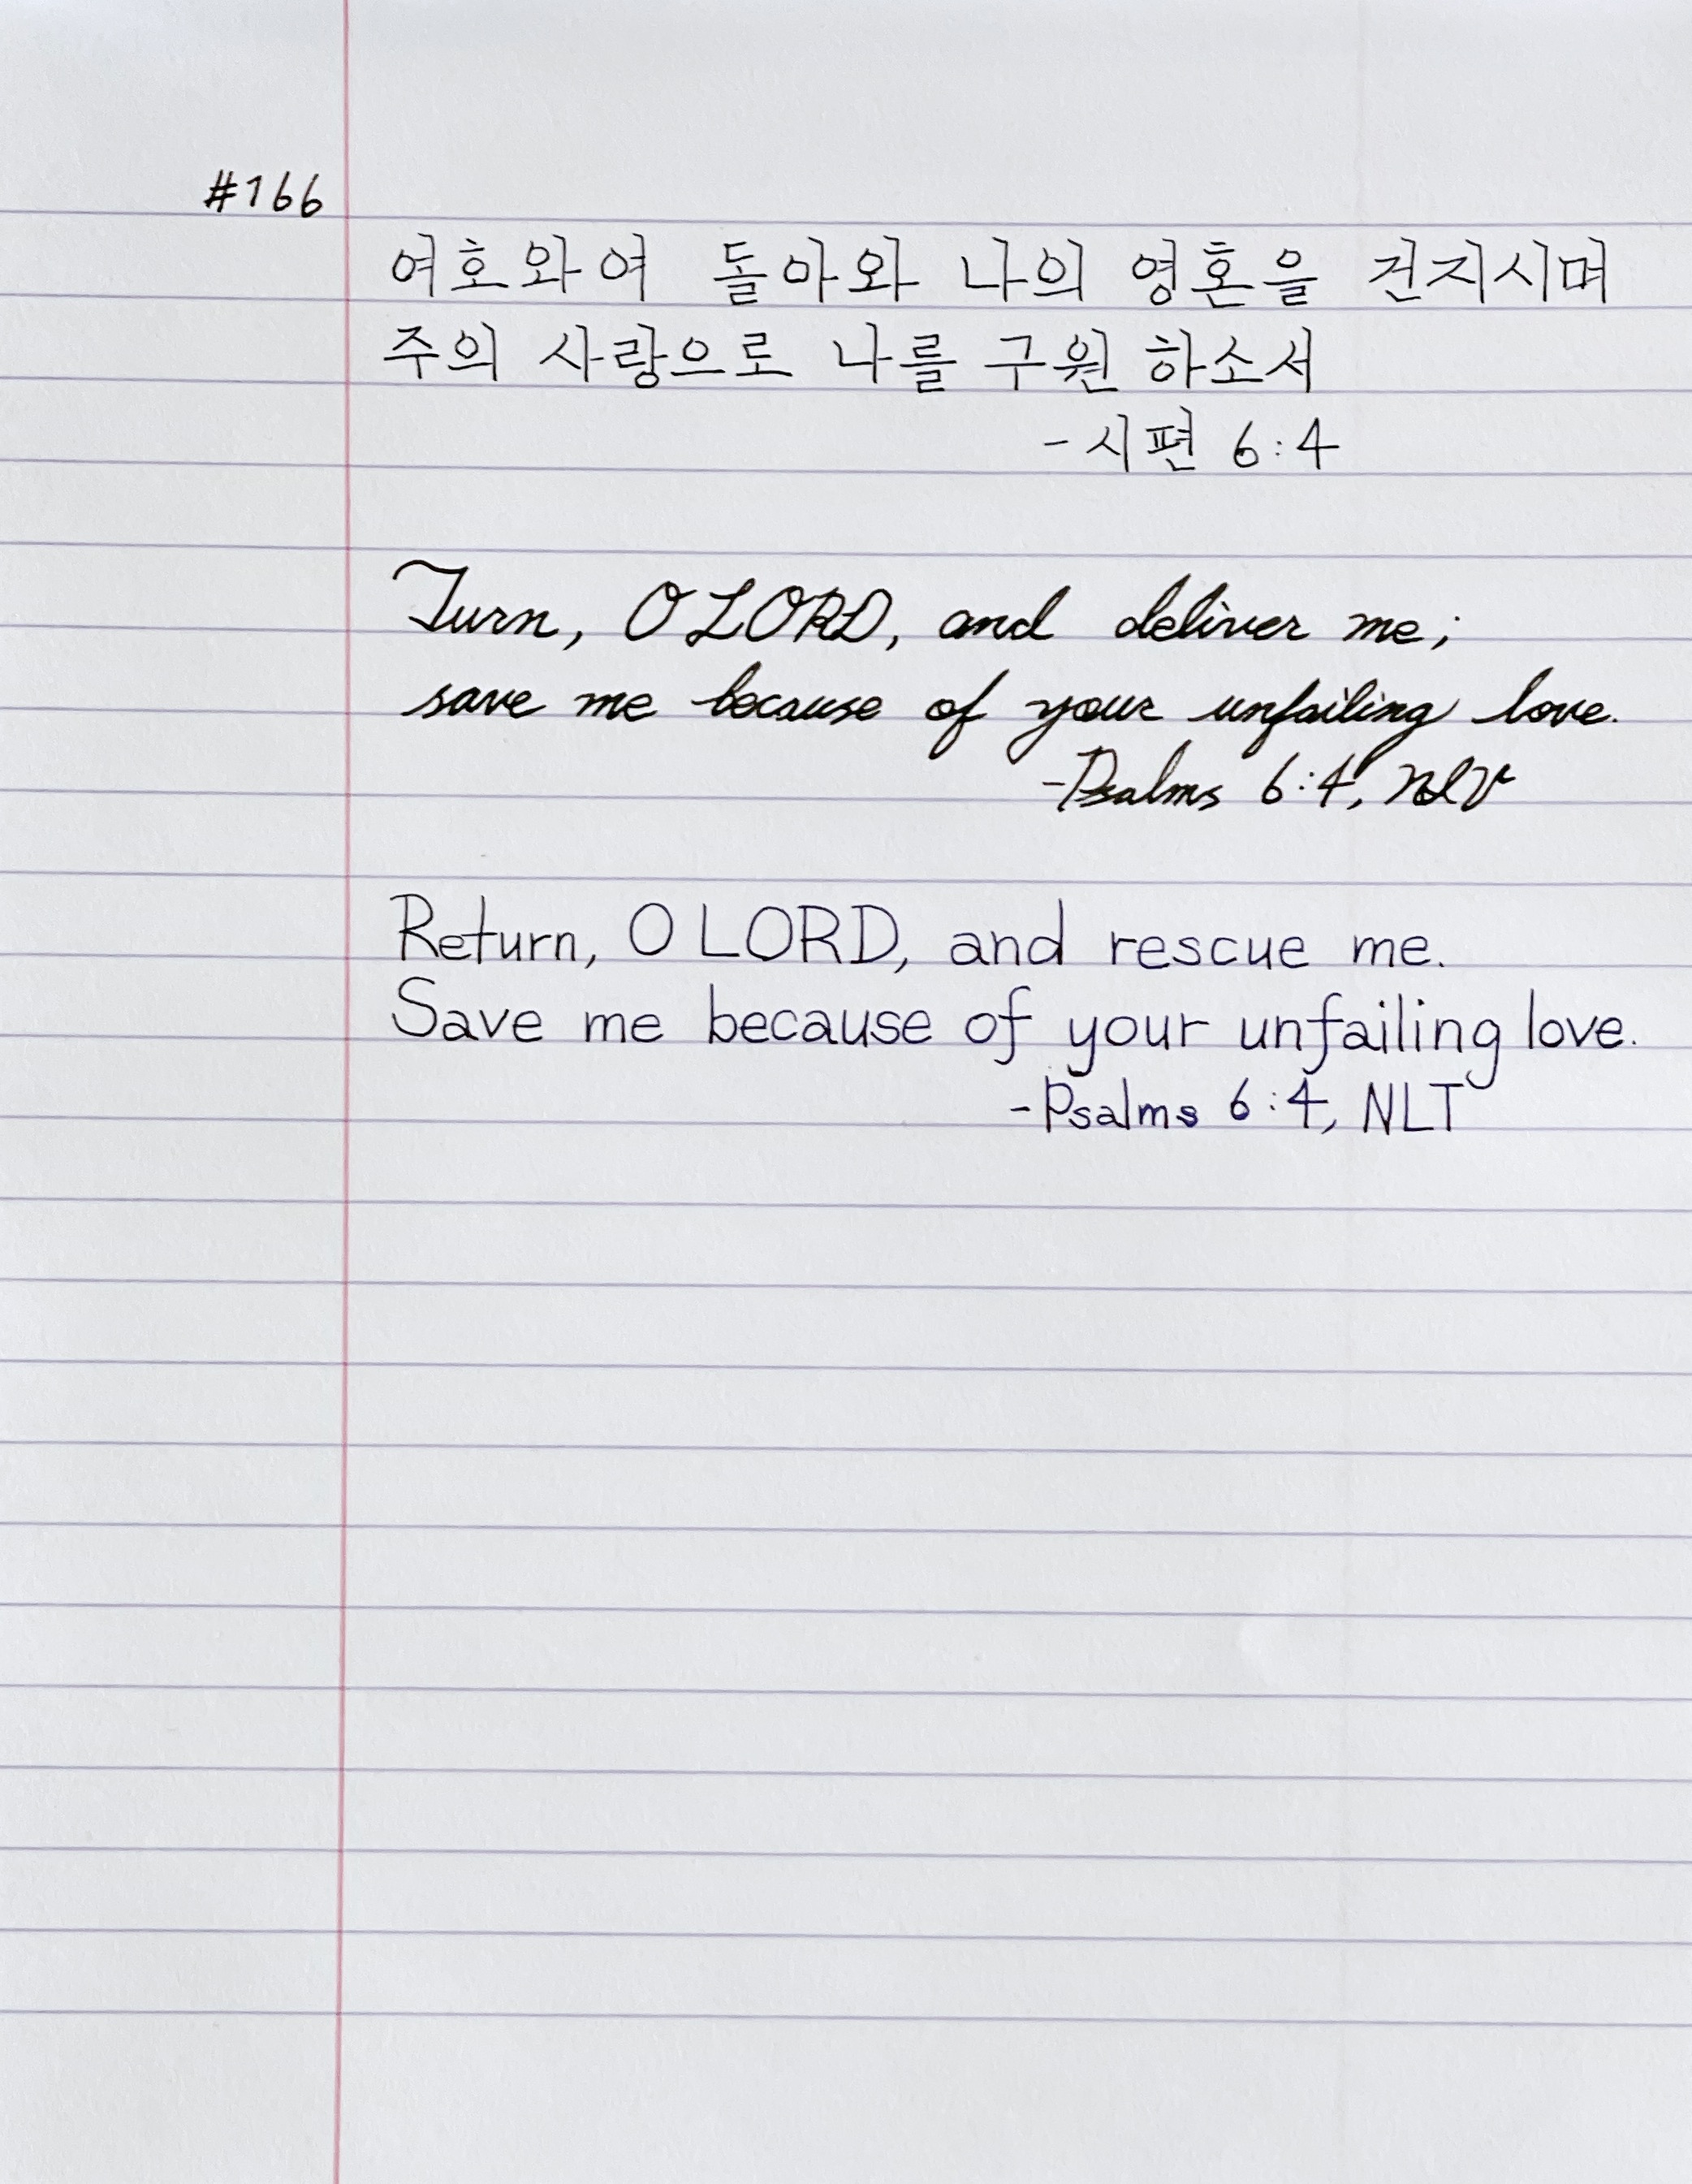 #166
여호와여 돌아와 나의 영혼을 건지시며
주의 사랑으로 나를 구원 하소서
-시편 6:4
Turn, O LORD, and deliver me;
save me because of your unfailing love.
-Psalms 6:4, NIV
Return, O LORD, and rescue me.
Save me because of your unfailing love.
-Psalms 6:4, NLT